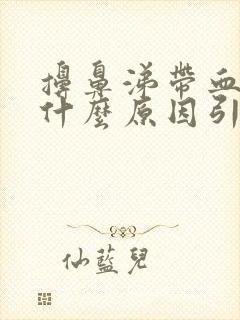 擤鼻涕帶血
什麼原因引
仙藍兒